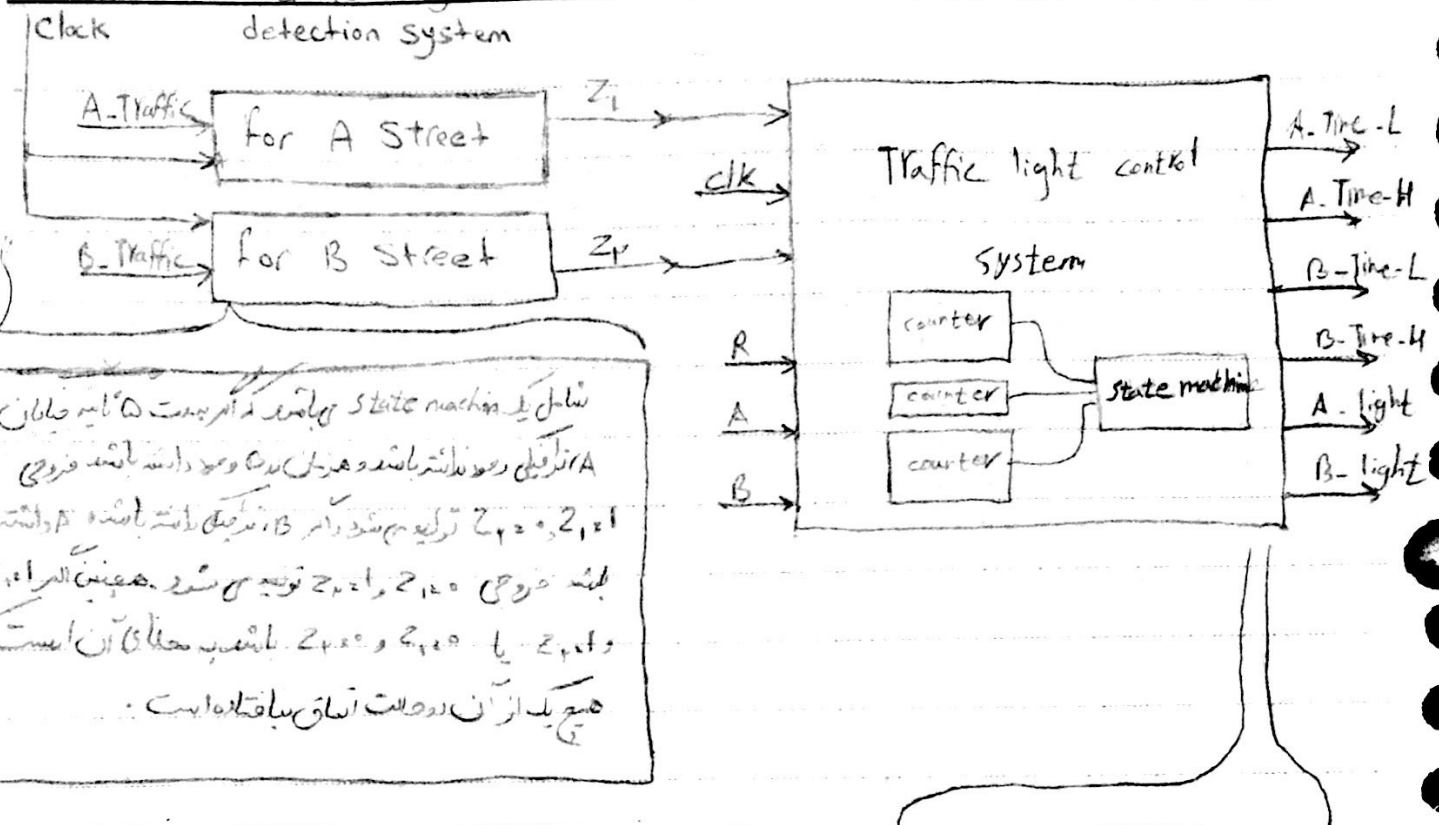 Clock
detection system
A_Traffic
for A Street
Z۱
B_Traffic
for B Street
Z۲
clk
R
A
B
Traffic light control
system
counter
counter
counter
state machine
A_Time-L
A_Time-H
B_Time-L
B_Time-H
A_light
B_light
شامل یک state machin می‌باشد که اگر بمدت ۵ ثانیه خیابان
A، ترافیکی وجود نداشته باشد و همزمان در B وجود داشته باشد خروجی
Z۱=۱ و Z۲=۰ تولید می‌شود و اگر B، ترافیک نداشته باشد و A داشته
باشد خروجی Z۱=۰ و Z۲=۱ تولید می شود. همچنین اگر Z۱=۱
و Z۲=۱ یا Z۱=۰ و Z۲=۰ باشد به معنای آن است که
هیچ یک از آن دو حالت اتفاق نیافتاده است.